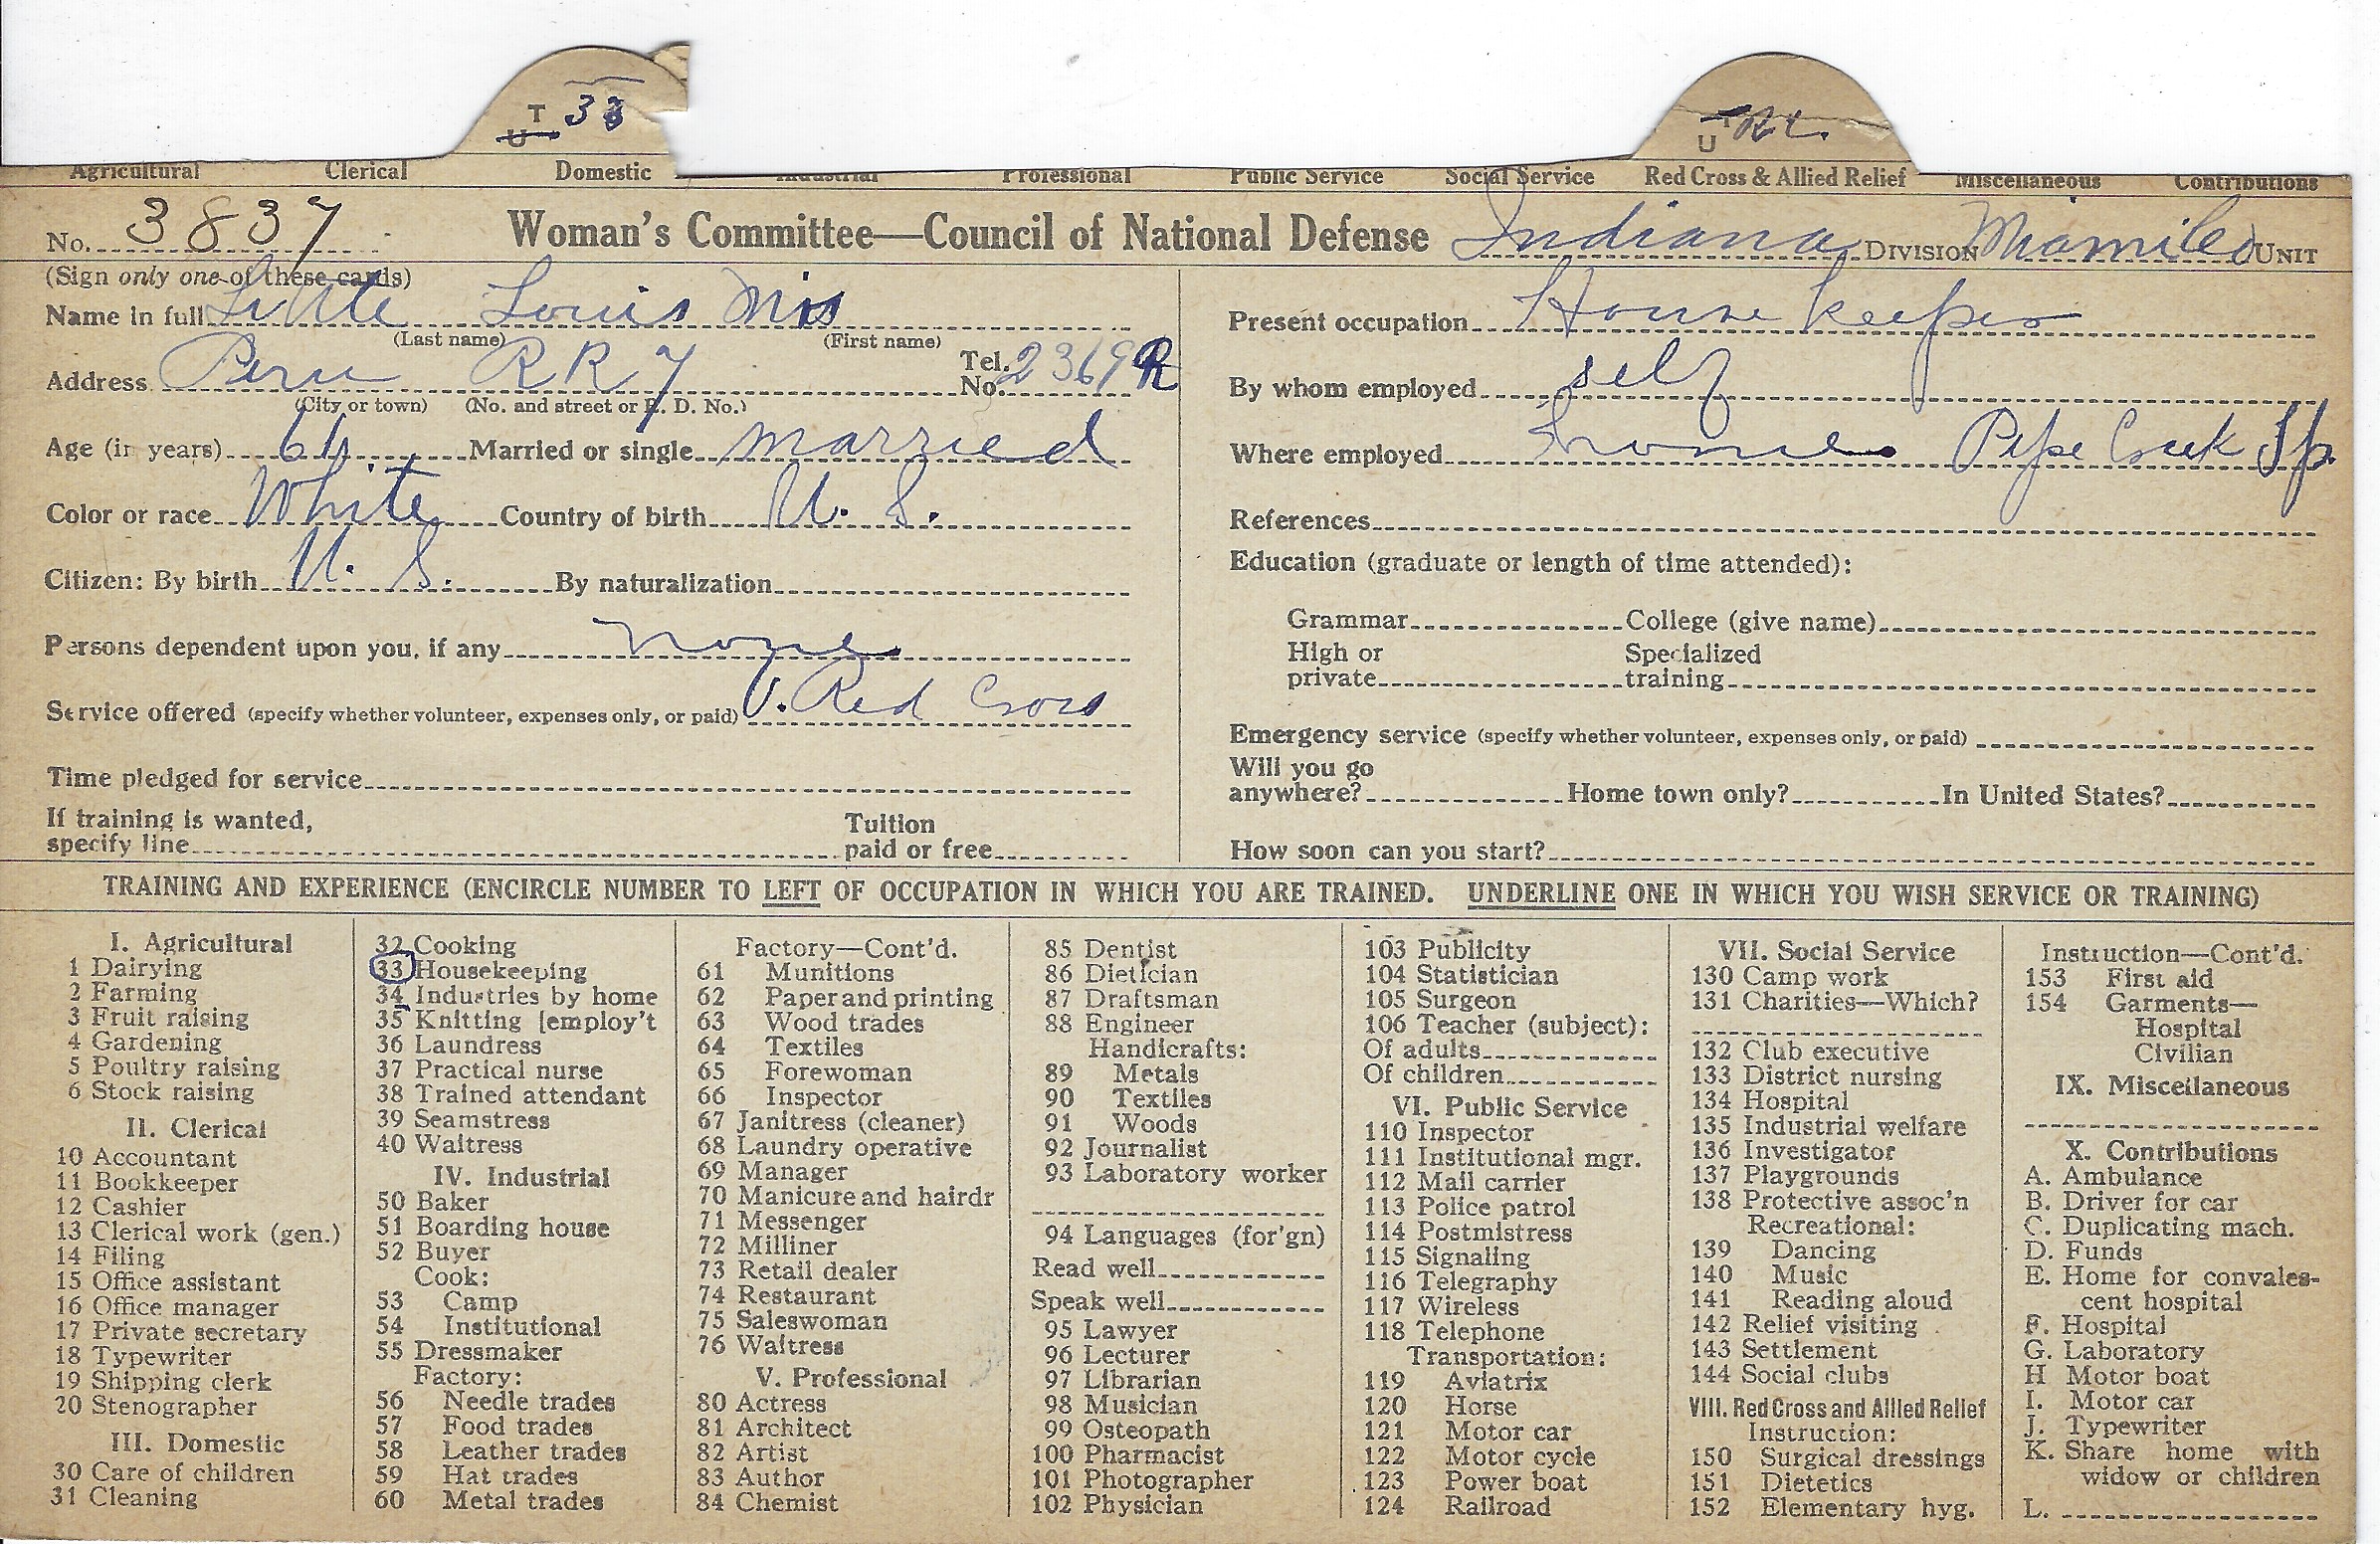 T
U 33
T
U
Agricultural Clerical Domestic Industrial Professional Public Service Social Service Red Cross & Allied Relief Miscellaneous Contributions
No. 3837 Woman's Committee—Council of National Defense Indiana DIVISION Miami Co UNIT
(Sign only one of these cards)
Name in full Little Louis Mrs
(Last name) (First name)
Address Peru RR 7 Tel. No. 2369 R
(City or town) (No. and street or R. D. No.)
Age (in years) 64 Married or single married
Color or race White Country of birth U. S.
Citizen: By birth U. S. By naturalization
Persons dependent upon you, if any none
Service offered (specify whether volunteer, expenses only, or paid) V. Red Cross
Time pledged for service
If training is wanted,
specify line Tuition paid or free
Present occupation House keeper
By whom employed self
Where employed home Pipe Creek Tp.
References
Education (graduate or length of time attended):
Grammar College (give name)
High or private Specialized training
Emergency service (specify whether volunteer, expenses only, or paid)
Will you go
anywhere? Home town only? In United States?
How soon can you start?
TRAINING AND EXPERIENCE (ENCIRCLE NUMBER TO LEFT OF OCCUPATION IN WHICH YOU ARE TRAINED. UNDERLINE ONE IN WHICH YOU WISH SERVICE OR TRAINING)
I. Agricultural
1 Dairying
2 Farming
3 Fruit raising
4 Gardening
5 Poultry raising
6 Stock raising
II. Clerical
10 Accountant
11 Bookkeeper
12 Cashier
13 Clerical work (gen.)
14 Filing
15 Office assistant
16 Office manager
17 Private secretary
18 Typewriter
19 Shipping clerk
20 Stenographer
III. Domestic
30 Care of children
31 Cleaning
32 Cooking
33 Housekeeping
34 Industries by home
35 Knitting [employ't
36 Laundress
37 Practical nurse
38 Trained attendant
39 Seamstress
40 Waitress
IV. Industrial
50 Baker
51 Boarding house
52 Buyer
Cook:
53 Camp
54 Institutional
55 Dressmaker
Factory:
56 Needle trades
57 Food trades
58 Leather trades
59 Hat trades
60 Metal trades
Factory—Cont'd.
61 Munitions
62 Paper and printing
63 Wood trades
64 Textiles
65 Forewoman
66 Inspector
67 Janitress (cleaner)
68 Laundry operative
69 Manager
70 Manicure and hairdr
71 Messenger
72 Milliner
73 Retail dealer
74 Restaurant
75 Saleswoman
76 Waitress
V. Professional
80 Actress
81 Architect
82 Artist
83 Author
84 Chemist
85 Dentist
86 Dietician
87 Draftsman
88 Engineer
Handicrafts:
89 Metals
90 Textiles
91 Woods
92 Journalist
93 Laboratory worker
94 Languages (for'gn)
Read well
Speak well
95 Lawyer
96 Lecturer
97 Librarian
98 Musician
99 Osteopath
100 Pharmacist
101 Photographer
102 Physician
103 Publicity
104 Statistician
105 Surgeon
106 Teacher (subject):
Of adults
Of children
VI. Public Service
110 Inspector
111 Institutional mgr.
112 Mail carrier
113 Police patrol
114 Postmistress
115 Signaling
116 Telegraphy
117 Wireless
118 Telephone
Transportation:
119 Aviatrix
120 Horse
121 Motor car
122 Motor cycle
123 Power boat
124 Railroad
VII. Social Service
130 Camp work
131 Charities—Which?
132 Club executive
133 District nursing
134 Hospital
135 Industrial welfare
136 Investigator
137 Playgrounds
138 Protective assoc'n
Recreational:
139 Dancing
140 Music
141 Reading aloud
142 Relief visiting
143 Settlement
144 Social clubs
VIII. Red Cross and Allied Relief
Instruction:
150 Surgical dressings
151 Dietetics
152 Elementary hyg.
Instruction—Cont'd.
153 First aid
154 Garments—
Hospital
Civilian
IX. Miscellaneous
X. Contributions
A. Ambulance
B. Driver for car
C. Duplicating mach.
D. Funds
E. Home for convales-
cent hospital
F. Hospital
G. Laboratory
H Motor boat
I. Motor car
J. Typewriter
K. Share home with
widow or children
L.